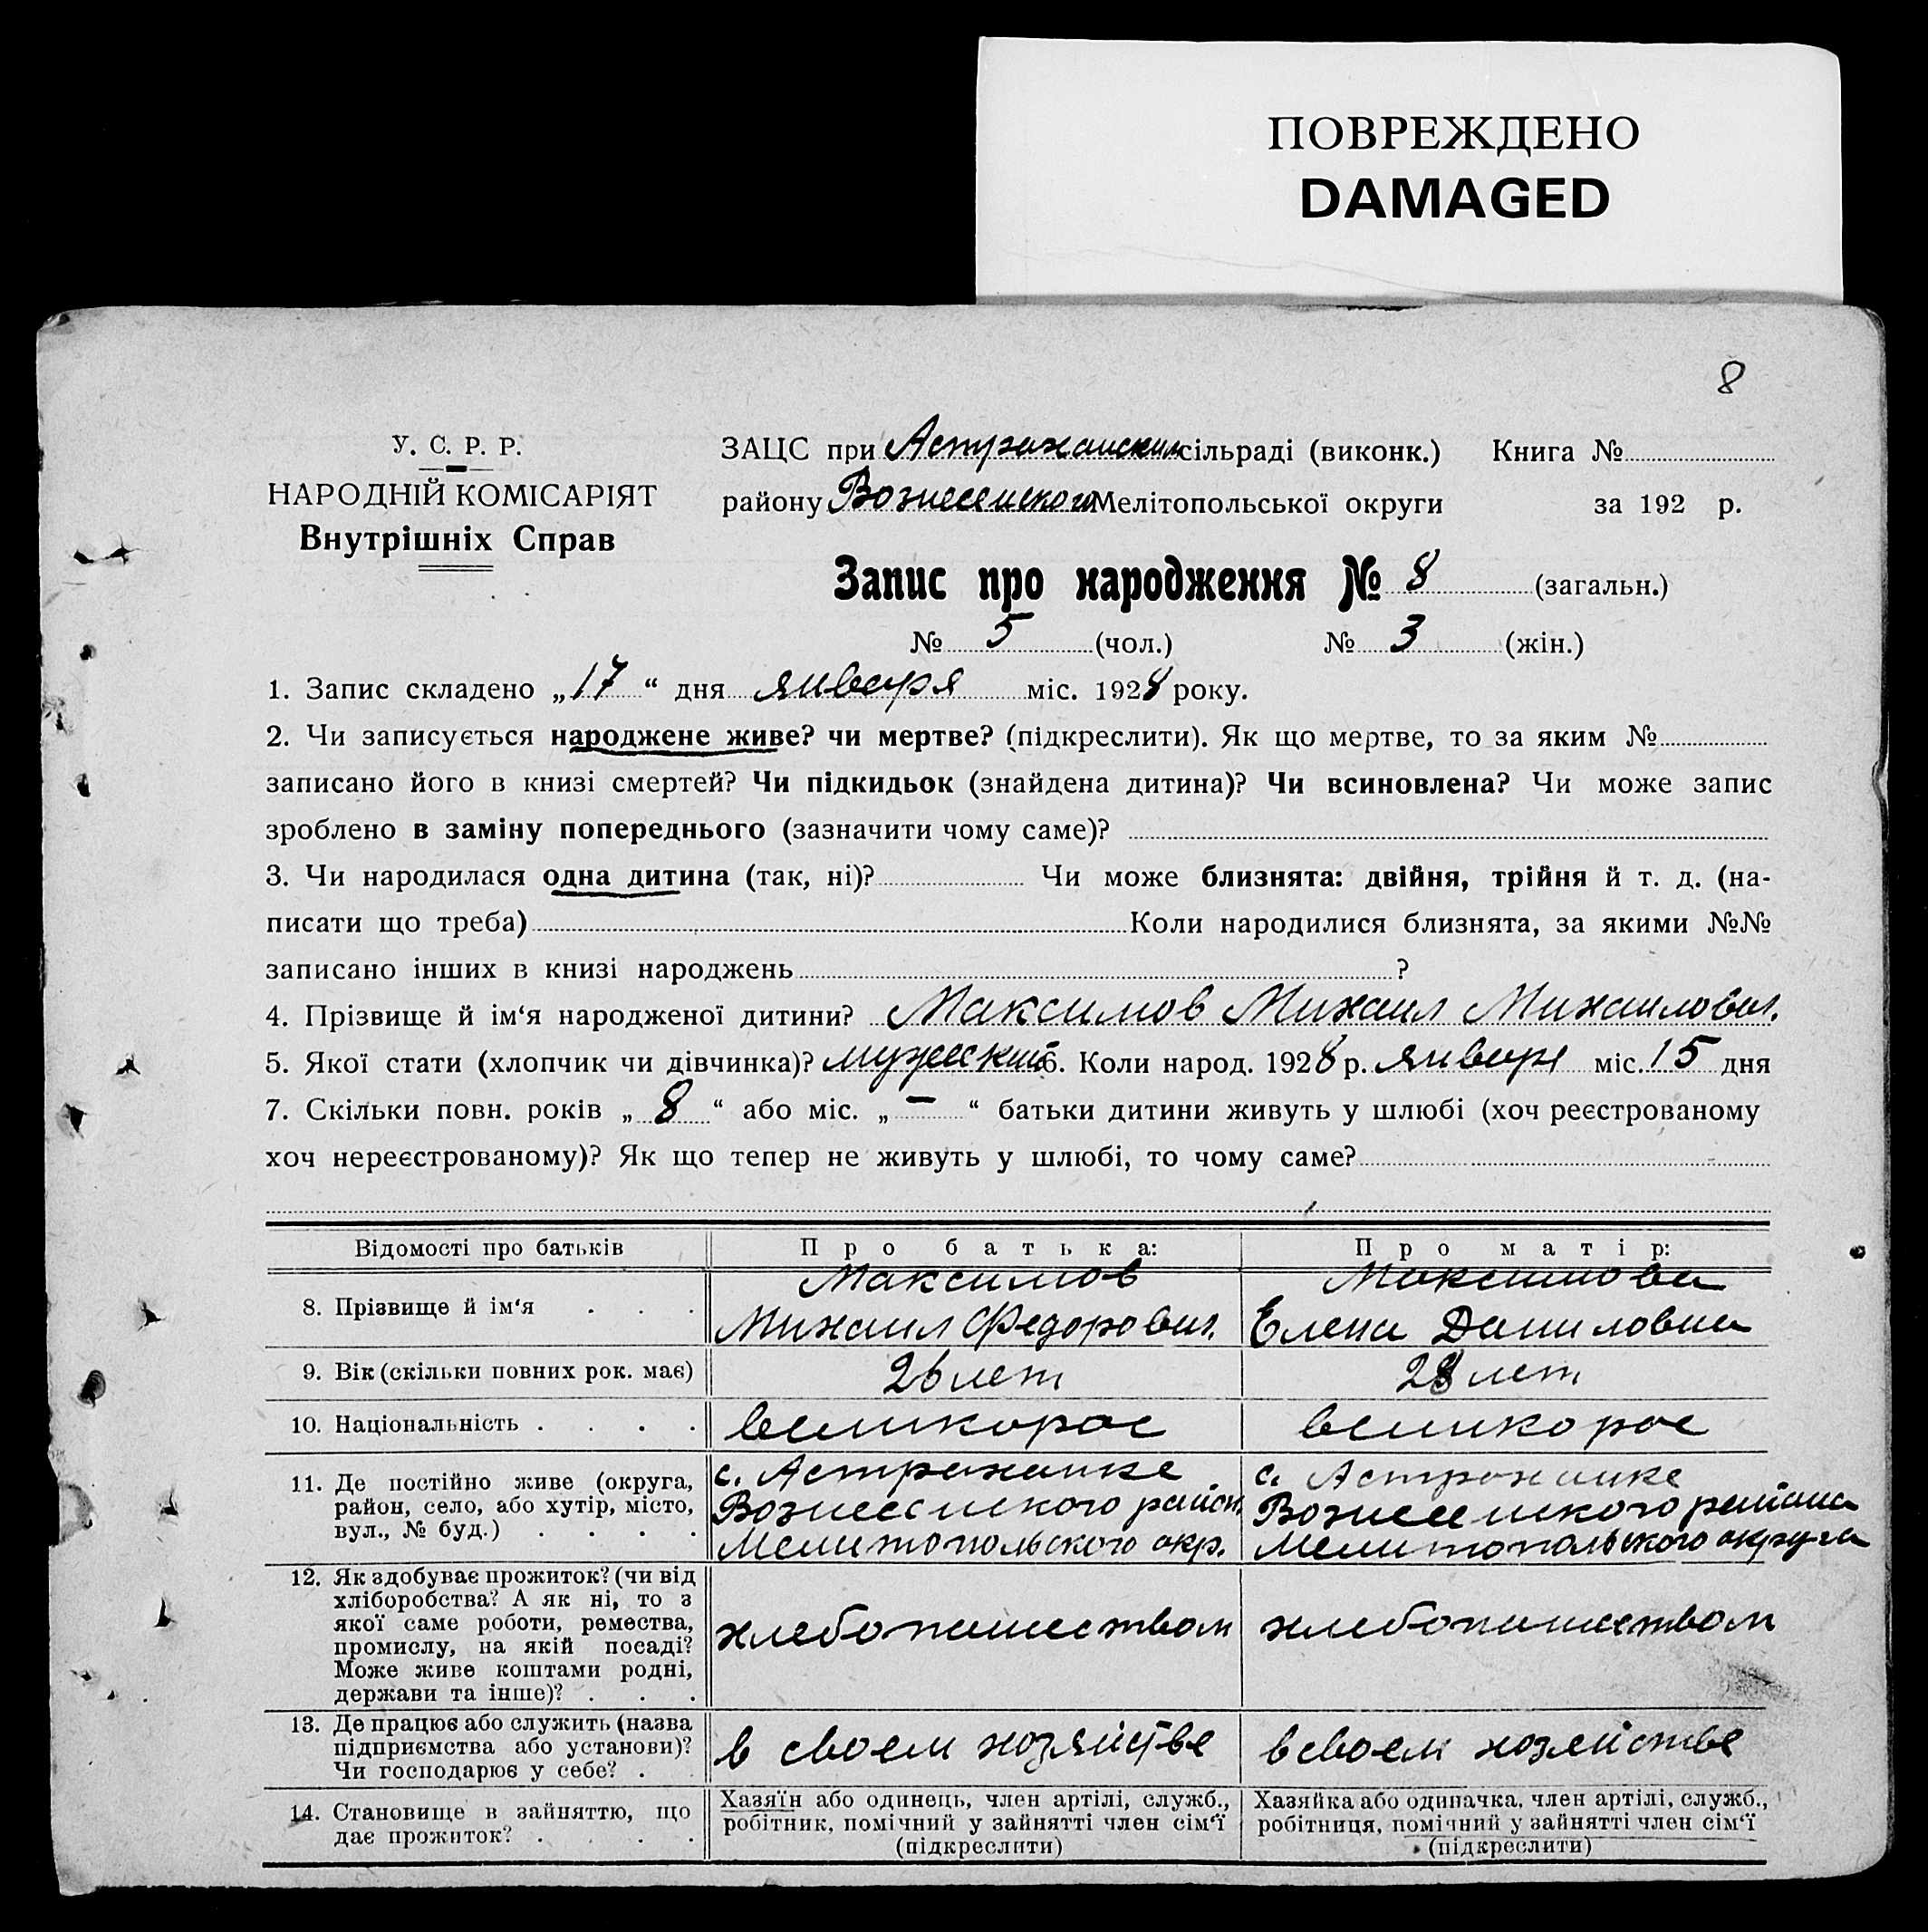 ПОВРЕЖДЕНО
DAMAGED
8
У. С. Р. Р.
НАРОДНІЙ КОМІСАРІЯТ
Внутрішніх Справ
ЗАЦС при Астраханским сільраді (виконк.) Книга №
району Вознесенского Мелітопольської округи за 192 р.
Запис про народження № 8 (загальн.)
№ 5 (чол.) № 3 (жін.)
1. Запис складено „17“ дня января міс. 1928 року.
2. Чи записується народжене живе? чи мертве? (підкреслити). Як що мертве, то за яким №
записано його в книзі смертей? Чи підкидьок (знайдена дитина)? Чи всиновлена? Чи може запис
зроблено в заміну попереднього (зазначити чому саме)?
3. Чи народилася одна дитина (так, ні)? Чи може близнята: двійня, трійня й т. д. (на-
писати що треба) Коли народилися близнята, за якими №№
записано інших в книзі народжень ?
4. Прізвище й ім‘я народженої дитини? Максимов Михаил Михаилович.
5. Якої стати (хлопчик чи дівчинка)? мужский 6. Коли народ. 1928 р. января міс. 15 дня
7. Скільки повн. років „8“ або міс. „–“ батьки дитини живуть у шлюбі (хоч реєстрованому
хоч нереєстрованому)? Як що тепер не живуть у шлюбі, то чому саме?
Відомості про батьків Про батька: Про матір:
8. Прізвище й ім‘я . . .
Максимов
Михаил Федорович.
Максимова
Елена Даниловна
9. Вік (скільки повних рок. має) 26 лет 28 лет
10. Національність . . . . великорос великорос
11. Де постійно живе (округа,
район, село, або хутір, місто,
вул., № буд.) . . . .
с. Астраханке
Вознесенского район.
Мелитопольского окр.
с. Астраханке
Вознесенского района
Мелитопольского округа
12. Як здобуває прожиток? (чи від
хліборобства? А як ні, то з
якої саме роботи, ремества,
промислу, на якій посаді?
Може живе коштами родні,
держави та інше)? . . .
хлебопашеством
хлебопашеством
13. Де працює або служить (назва
підприємства або установи)?
Чи господарює у себе? .
в своем хозяйстве
в своем хозяйстве
14. Становище в зайняттю, що
дає прожиток? . . . .
Хазяїн або одинець, член артілі, служб.,
робітник, помічний у зайнятті член сім‘ї
(підкреслити)
Хазяйка або одиначка, член артілі, служб.,
робітниця, помічний у зайнятті член сім‘ї
(підкреслити)